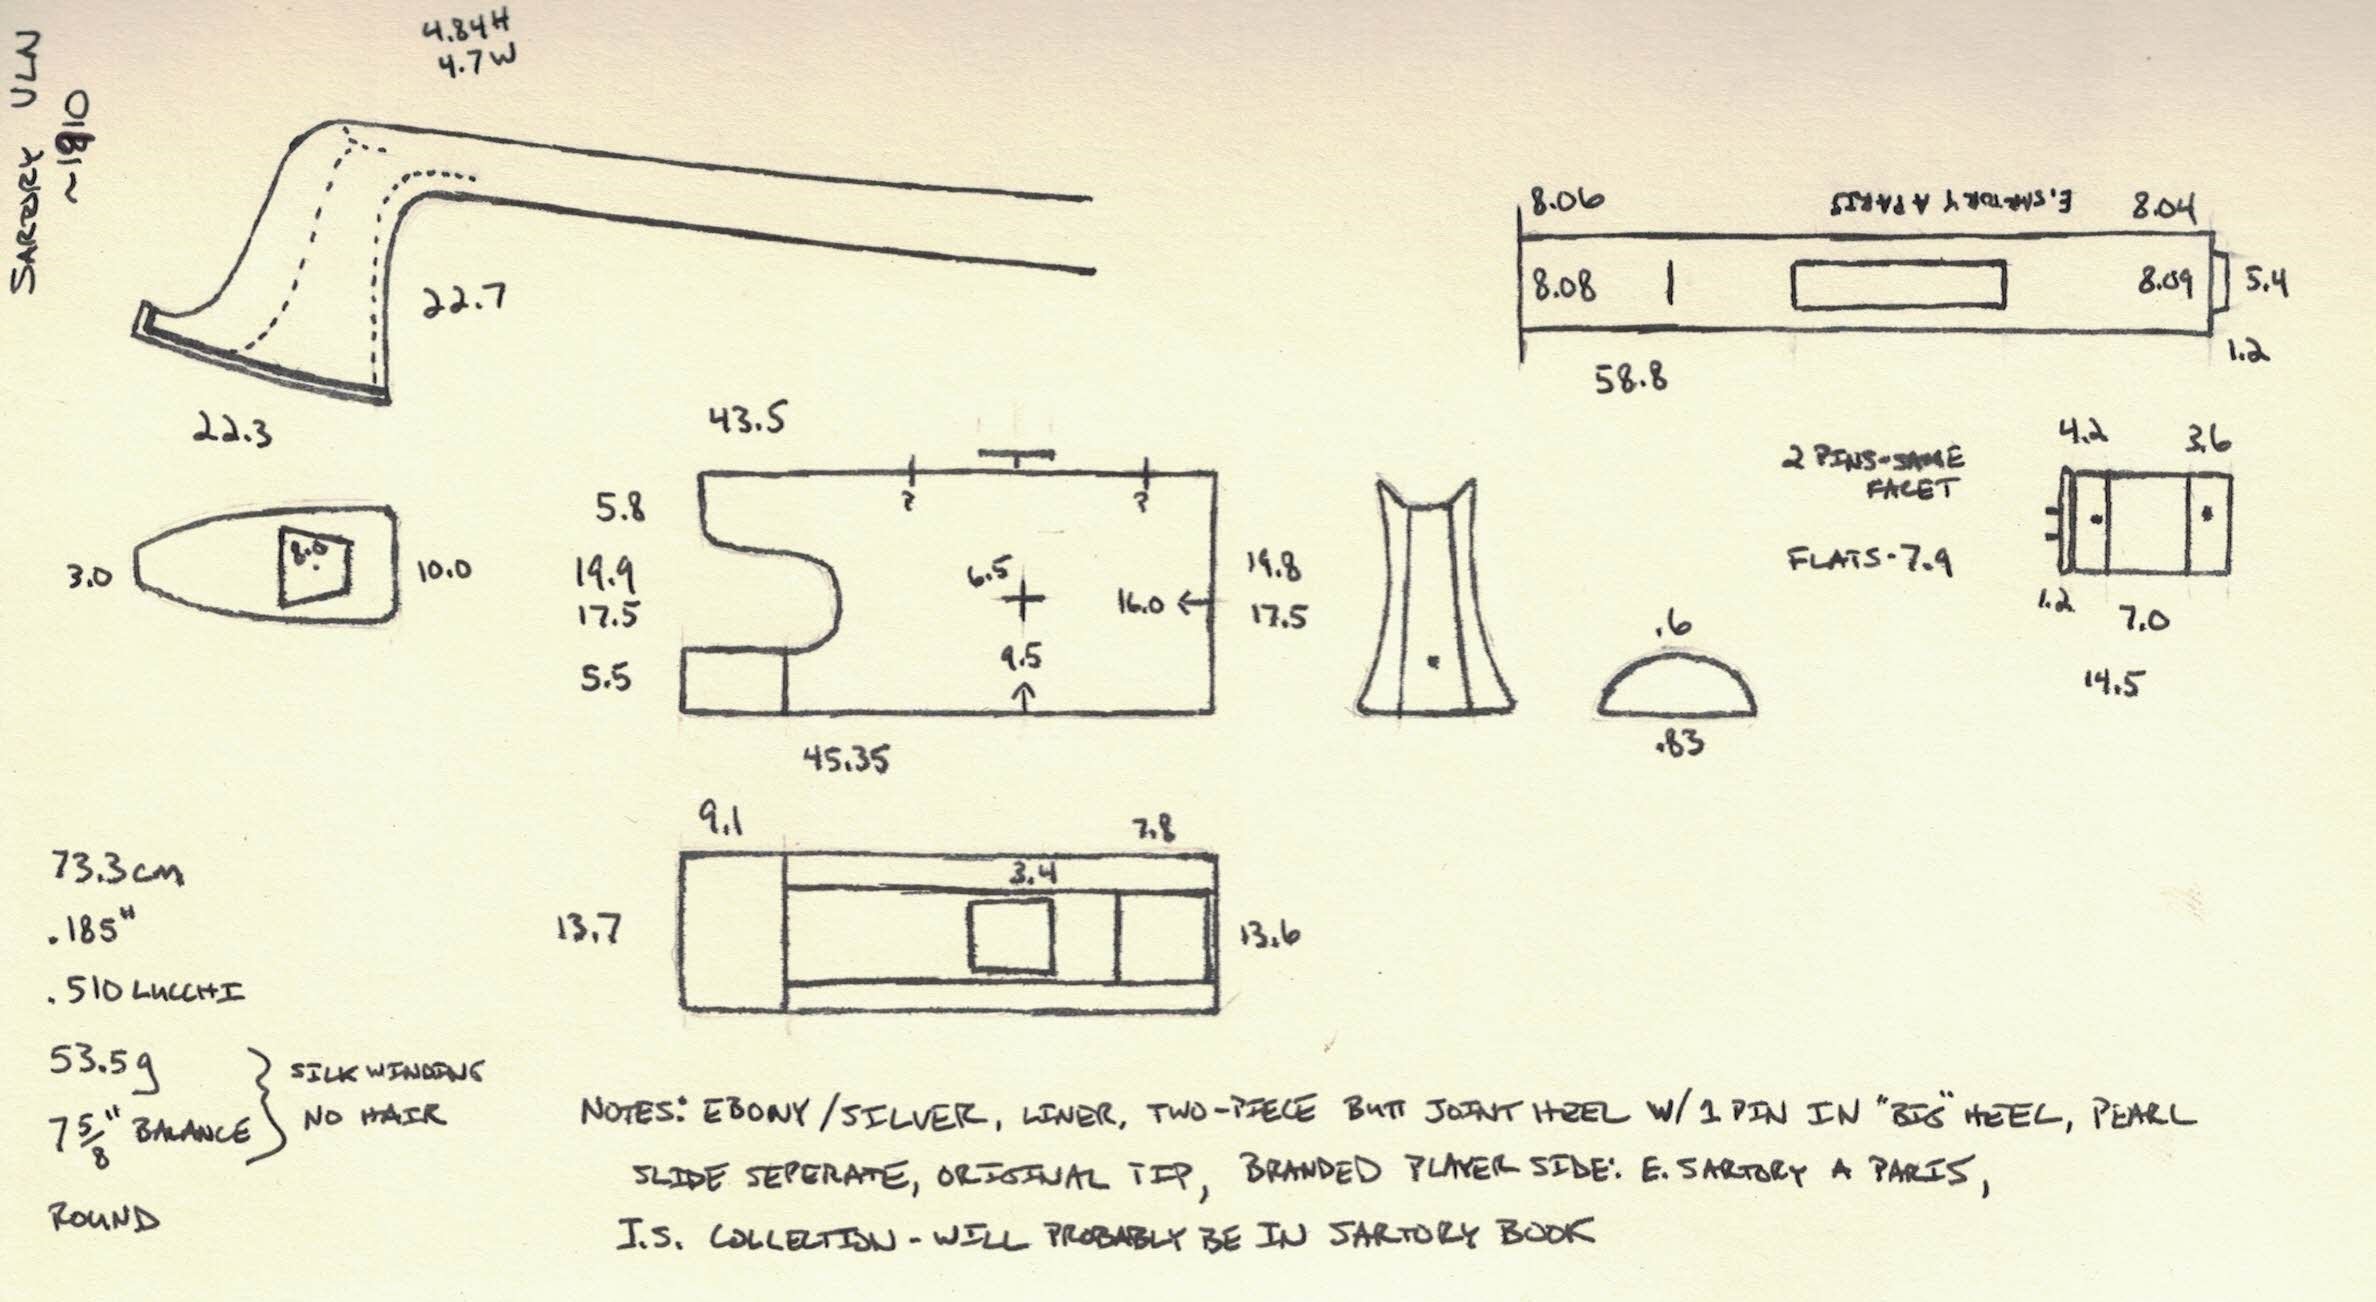 SARTORY VLN
~1910
4.84H
4.7W
22.7
22.3
8.06
E. SARTORY A PARIS
8.04
8.08
8.09
5.4
1.2
58.8
3.0
8.0
10.0
43.5
5.8
19.9
17.5
5.5
?
?
6.5
9.5
16.0
19.8
17.5
45.35
.6
.83
2 PINS-SAME
FACET
FLATS-7.9
4.2
3.6
1.2
7.0
14.5
9.1
7.8
3.4
13.7
13.6
73.3cm
.185"
.510 LUCCHI
53.5g
7 5/8" BALANCE
SILK WINDING
NO HAIR
ROUND
NOTES: EBONY/SILVER, LINER, TWO-PIECE BUTT JOINT HEEL W/1 PIN IN "BIG" HEEL, PEARL
SLIDE SEPERATE, ORIGINAL TIP, BRANDED PLAYER SIDE: E. SARTORY A PARIS,
I.S. COLLECTION - WILL PROBABLY BE IN SARTORY BOOK